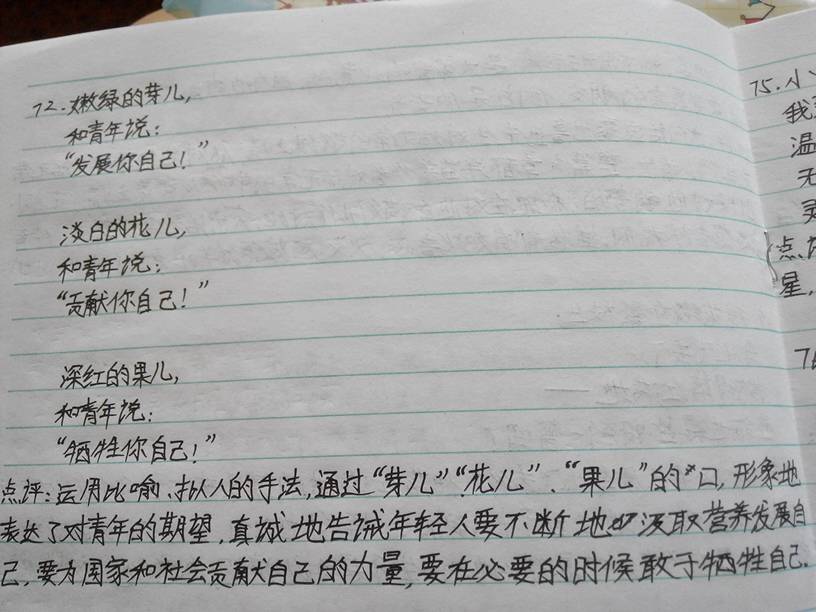 72.嫩绿的芽儿,
和青年说:
“发展你自己!”
淡白的花儿,
和青年说:
“贡献你自己!”
深红的果儿,
和青年说:
“牺牲你自己!”
点评:运用比喻、拟人的手法,通过“芽儿”“花儿”、“果儿”的口,形象地
表达了对青年的期望,真诚地告诫年轻人要不断地汲取营养发展自
己,要为国家和社会贡献自己的力量,要在必要的时候敢于牺牲自己.
75.小
我
温
无
灵
点评
星,